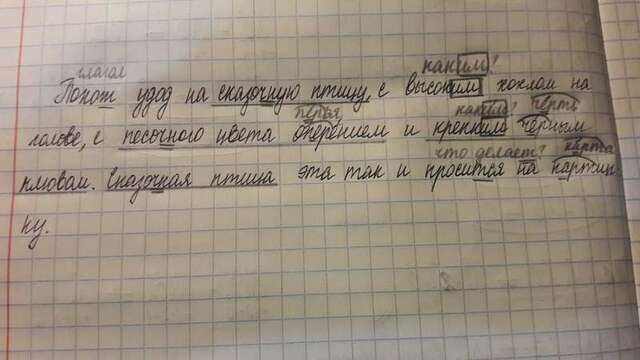 глагол каким?
Похож удод на сказочную птицу, с высоким хохлом на
перья каким? чернь
голове, с песочного цвета оперением и крепким чёрным
что делает? карта
клювом. Сказочная птица эта так и просится на картин-
ку.